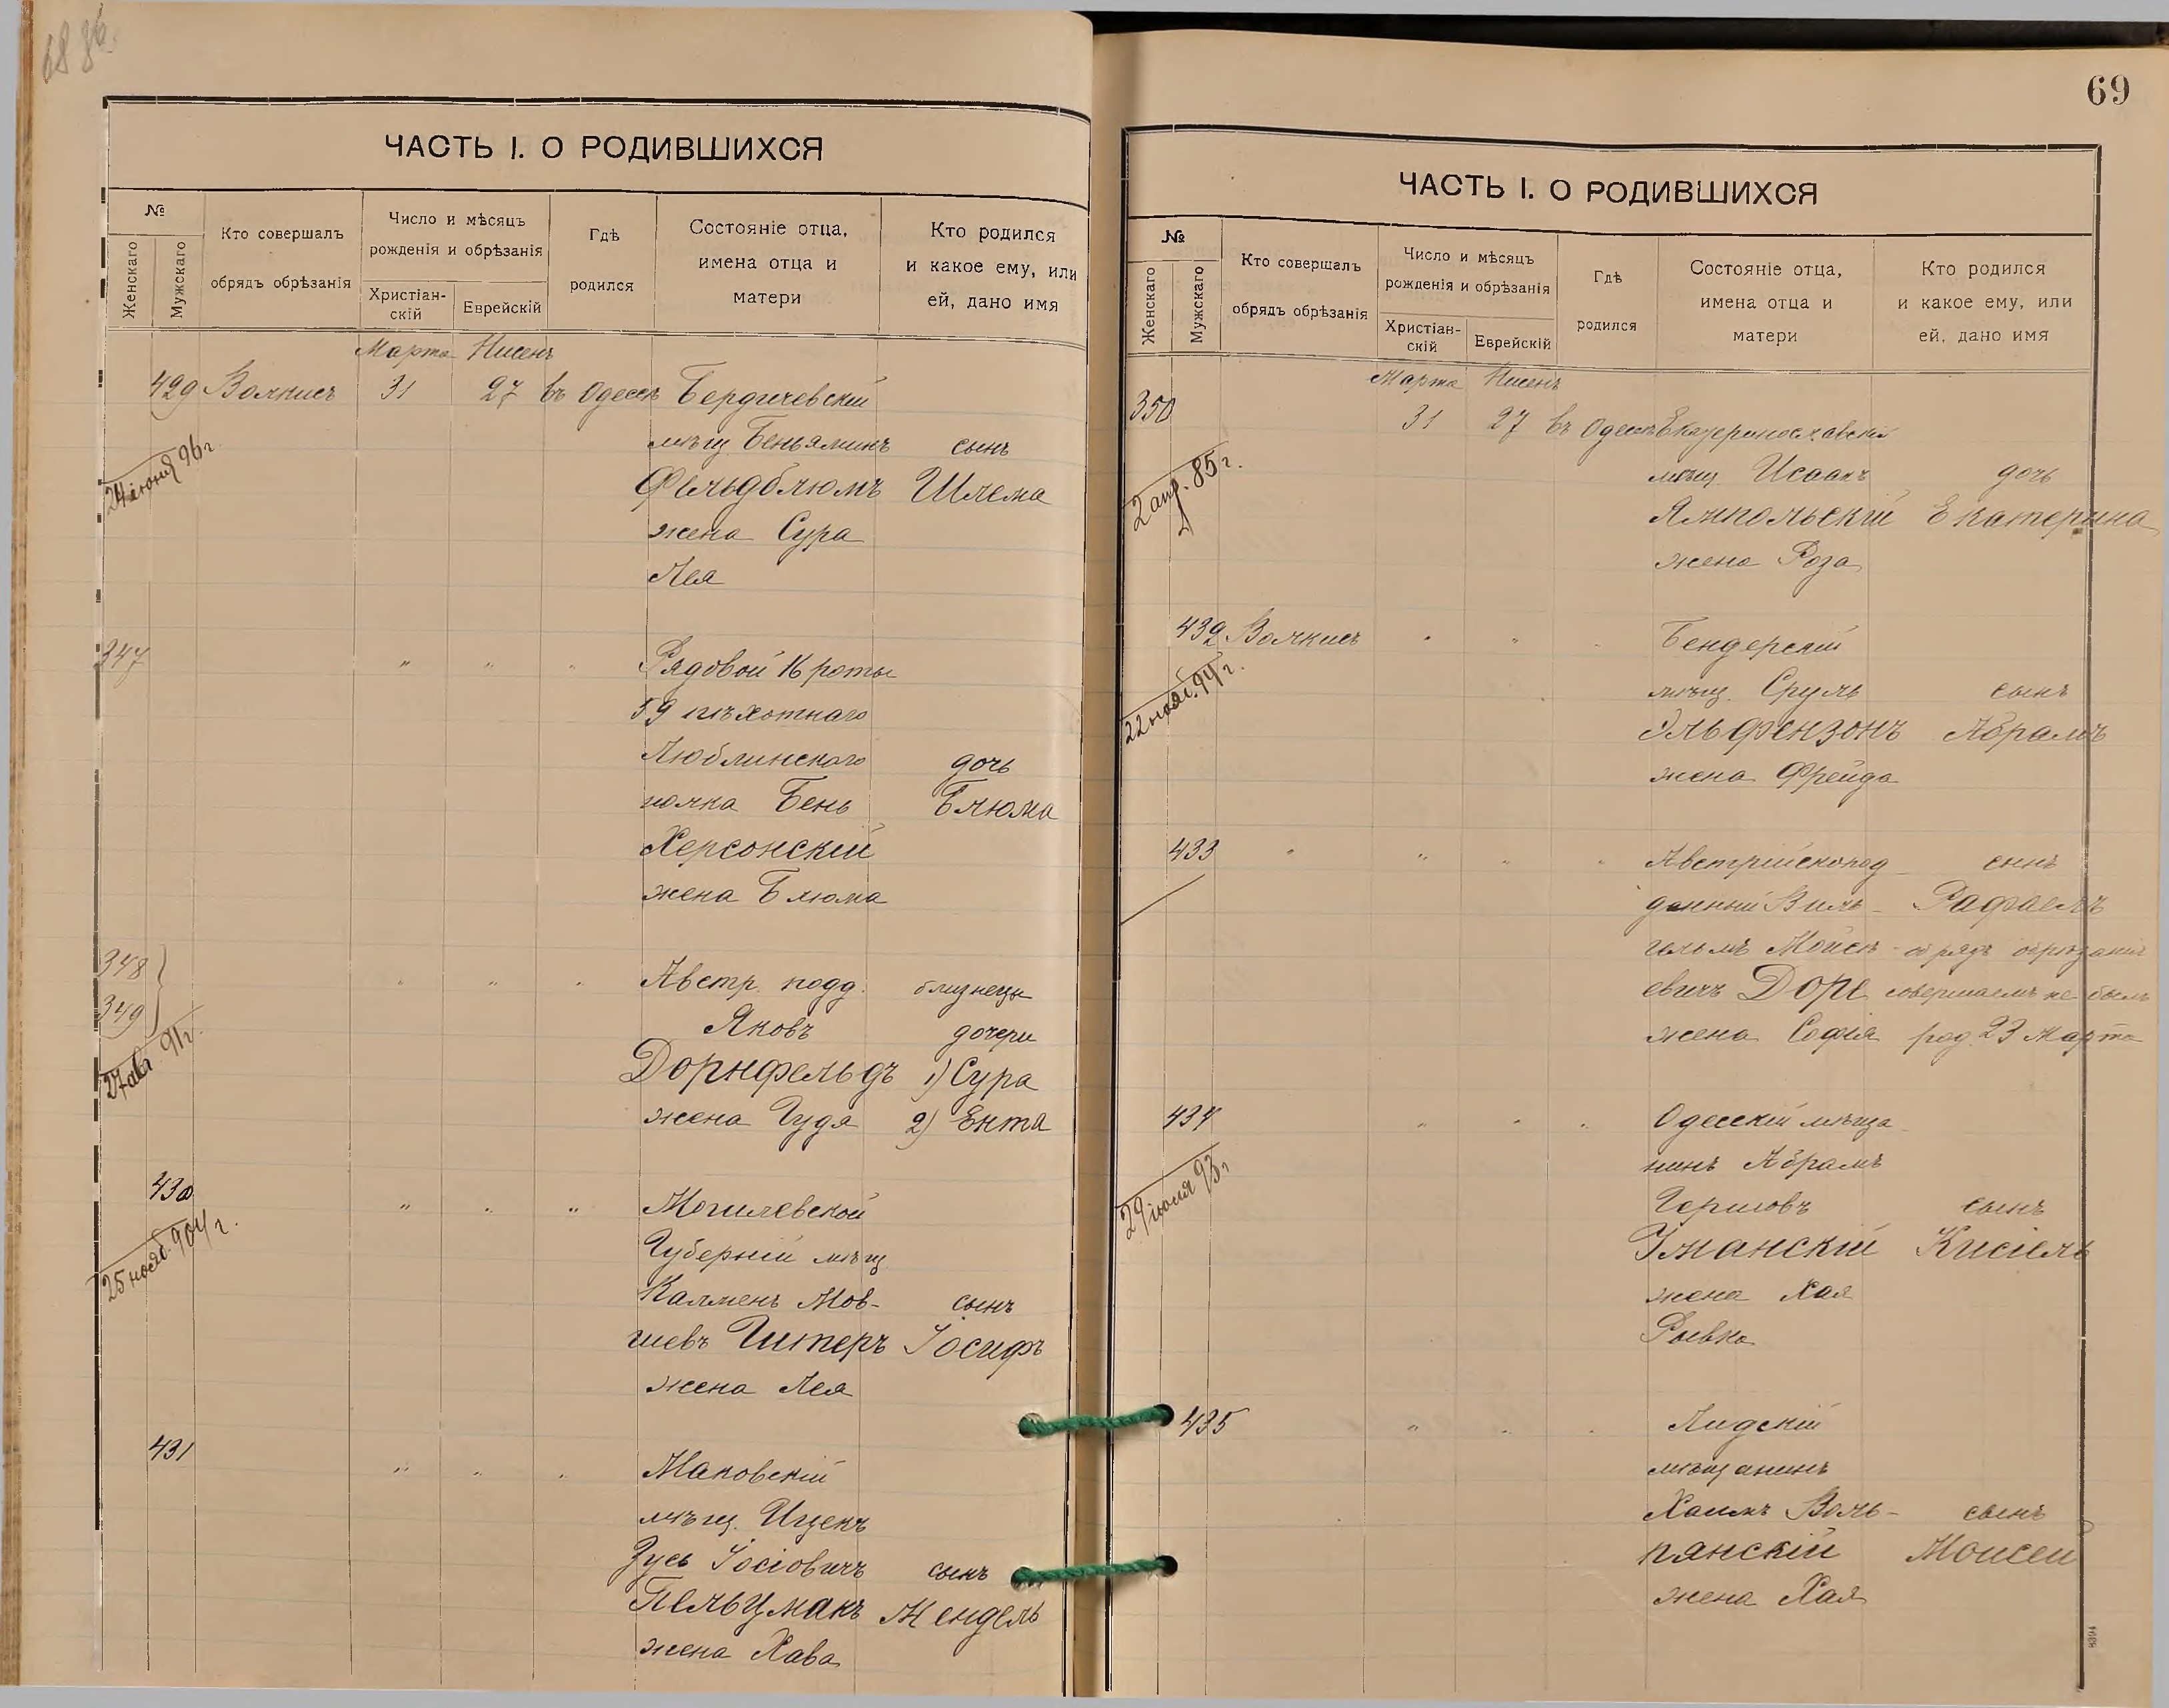 68 об.
ЧАСТЬ I. О РОДИВШИХСЯ
№
Женскаго
Мужскаго
Кто совершалъ
обрядъ обрѣзанія
Число и мѣсяцъ
рожденія и обрѣзанія
Христіан-
скій
Еврейскій
Гдѣ
родился
Состояніе отца,
имена отца и
матери
Кто родился
и какое ему, или
ей, дано имя
Марта Нисенъ
429 Волкисъ 31 27 въ Одессѣ Бердичевскій
мѣщ Беньяминъ сынъ
24 іюня 96 г
Фельдблюмъ Шлема
жена Сура
Лея
347 " " " Рядовой 16 роты
59 пѣхотнаго
Люблинскаго дочь
полка Бень Блюма
Херсонскій
жена Блюма
348
349
" " " Австр. подд. близнецы
Яковъ дочери
27 авг 91 г.
Дорнфельдъ 1) Сура
жена Гудя 2) Ента
430 " " " Могилевской
25 нояб. 904 г.
Губерніи мѣщ
Калменъ Мов- сынъ
шевъ Гитеръ Іосифъ
жена Лея
431 " " " Маковскій
мѣщ. Ицекъ
Зусь Іосіовичъ сынъ
Пельцмакъ Мендель
жена Хава
69
ЧАСТЬ I. О РОДИВШИХСЯ
№
Женскаго
Мужскаго
Кто совершалъ
обрядъ обрѣзанія
Число и мѣсяцъ
рожденія и обрѣзанія
Христіан-
скій
Еврейскій
Гдѣ
родился
Состояніе отца,
имена отца и
матери
Кто родился
и какое ему, или
ей, дано имя
Марта Нисенъ
350 31 27 въ Одессѣ Екатеринославскій
2 апр. 85 г.
мѣщ Исаакъ дочь
Ямпольскій Екатерина
жена Роза
432 Волкисъ " " " Бендерскій
22 нояб. 94 г.
мѣщ. Сруль сынъ
Эльфензонъ Абрамъ
жена Фрейда
433 " " " " Австрійскопод сынъ
данный Виль- Рафаелъ
гельмъ Мойсе- обрядъ обрѣзанія
евичъ Доре совершаемъ не былъ
жена Софія род. 23 Марта
434 " " " Одесскій мѣща
нинъ Абрамъ
29 іюля 93 г
Гершовъ сынъ
Уманскій Кисіель
жена Хая
Рывка
435 " " " Лидскій
мѣщанинъ
Хаимъ Воль- сынъ
пянскій Моисей
жена Хая